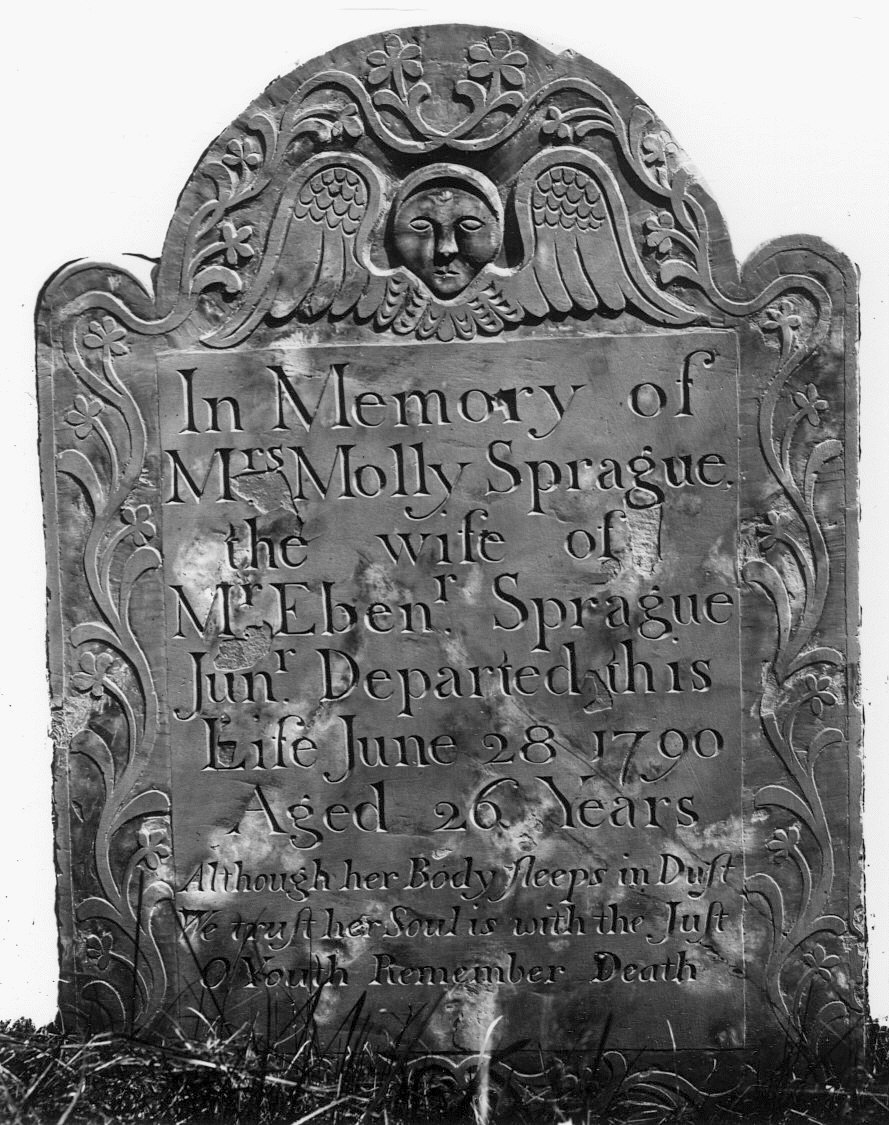 In Memory of
Mrs Molly Sprague.
the wife of
Mr. Ebenr. Sprague
Junr. Departed this
Life June 28 1790
Aged 26 Years
Although her Body ſleeps in Duſt
We truſt her Soul is with the Juſt
O Youth Remember Death